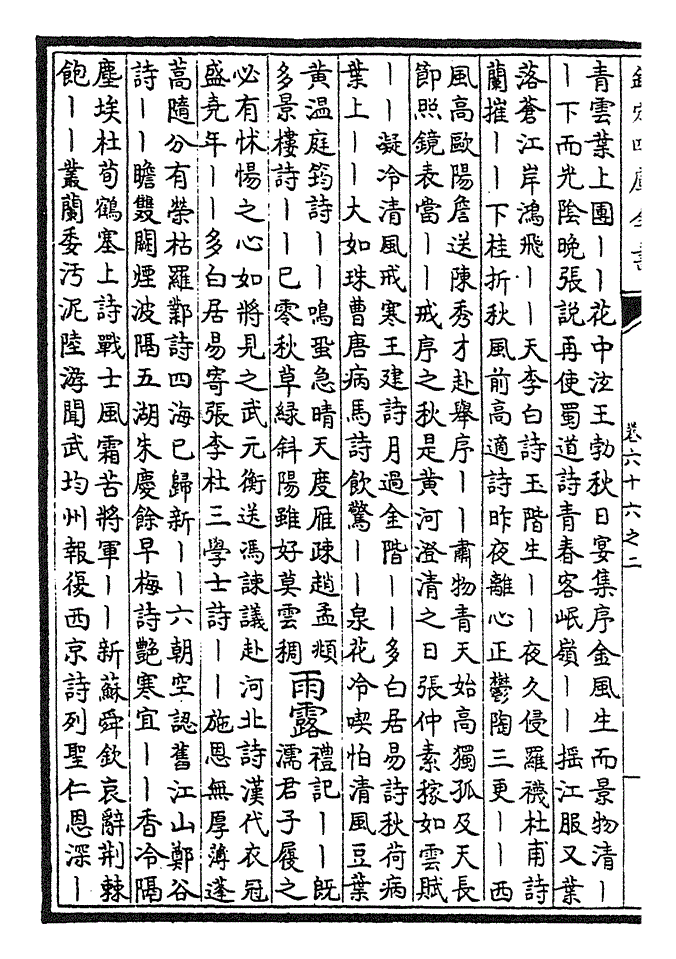 欽定四庫全書
卷六十六之二
青雲葉上團丨丨花中泫王勃秋日宴集序金風生而景物清丨
丨下而光陰晚張説再使蜀道詩青春客岷嶺丨丨揺江服又葉
落蒼江岸鴻飛丨丨天李白詩玉階生丨丨夜久侵羅襪杜甫詩
蘭摧丨丨下桂折秋風前高適詩昨夜離心正鬱陶三更丨丨西
風高歐陽詹送陳秀才赴舉序丨丨肅物青天始高獨孤及天長
節照鏡表當丨丨戒序之秋是黄河澄清之日張仲素稼如雲賦
丨丨凝冷清風戒寒王建詩月過金階丨丨多白居易詩秋荷病
葉上丨丨大如珠曹唐病馬詩飲驚丨丨泉花冷喫怕清風豆葉
黄温庭筠詩丨丨鳴蛩急晴天度雁疎趙孟頫
多景樓詩丨丨已零秋草緑斜陽雖好莫雲稠
雨露
禮記丨丨既
濡君子履之
必有怵惕之心如將見之武元衡送馮諫議赴河北詩漢代衣冠
盛堯年丨丨多白居易寄張李杜三學士詩丨丨施恩無厚薄蓬
蒿隨分有榮枯羅鄴詩四海已歸新丨丨六朝空認舊江山鄭谷
詩丨丨瞻雙闕煙波隔五湖朱慶餘早梅詩艶寒宜丨丨香冷隔
塵埃杜荀鶴塞上詩戰士風霜苦將軍丨丨新蘇舜欽哀辭荆棘
飽丨丨叢蘭委汚泥陸游聞武均州報復西京詩列聖仁恩深丨